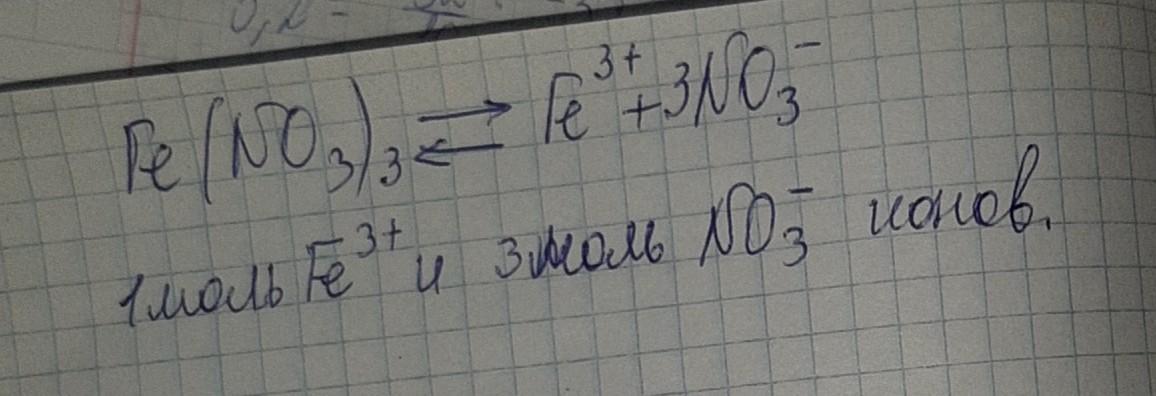 Fe(NO₃)₃ ⇄ Fe³⁺ + 3NO₃⁻
1моль Fe³⁺ и 3моль NO₃⁻ ионов.